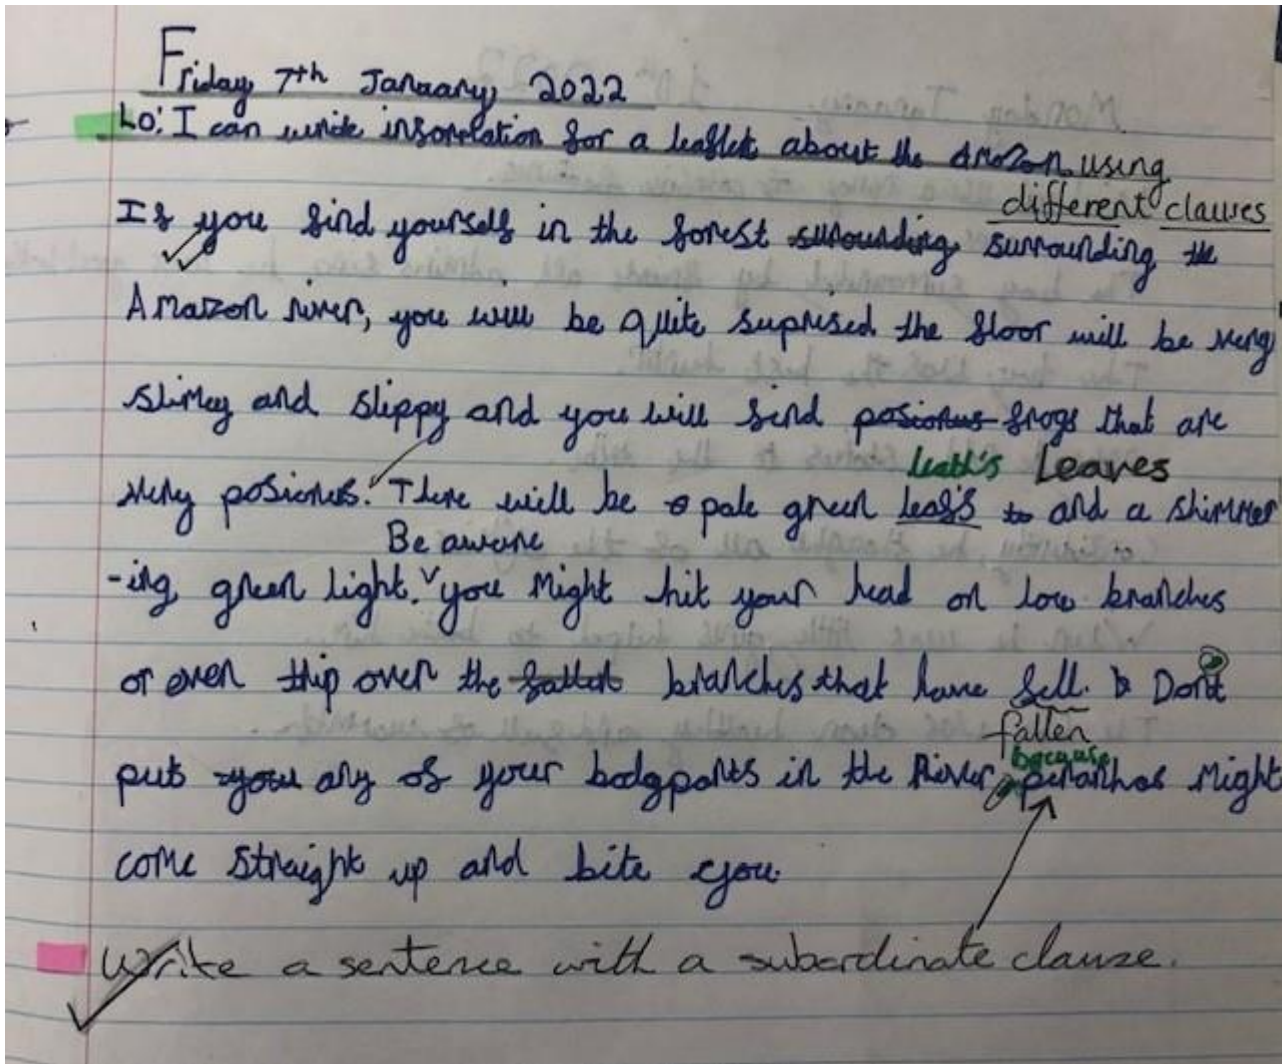 Friday 7th January 2022
LO: I can write information for a leaflet about the Amazon using
different clauses
If you find yourself in the forest surounding surrounding the
Amazon river, you will be quite suprised the floor will be very
slimey and slippy and you will find posionus frogs that are
leath's Leaves
very posionus. There will be pale green leaf's to and a shimmer
Be aware
-ing green light. you might hit your head on low branches
or even trip over the fallen branches that have fell. Don't
fallen
because
put your any of your bodyparts in the River, piranhas might
come straight up and bite you.
Write a sentence with a subordinate clause.